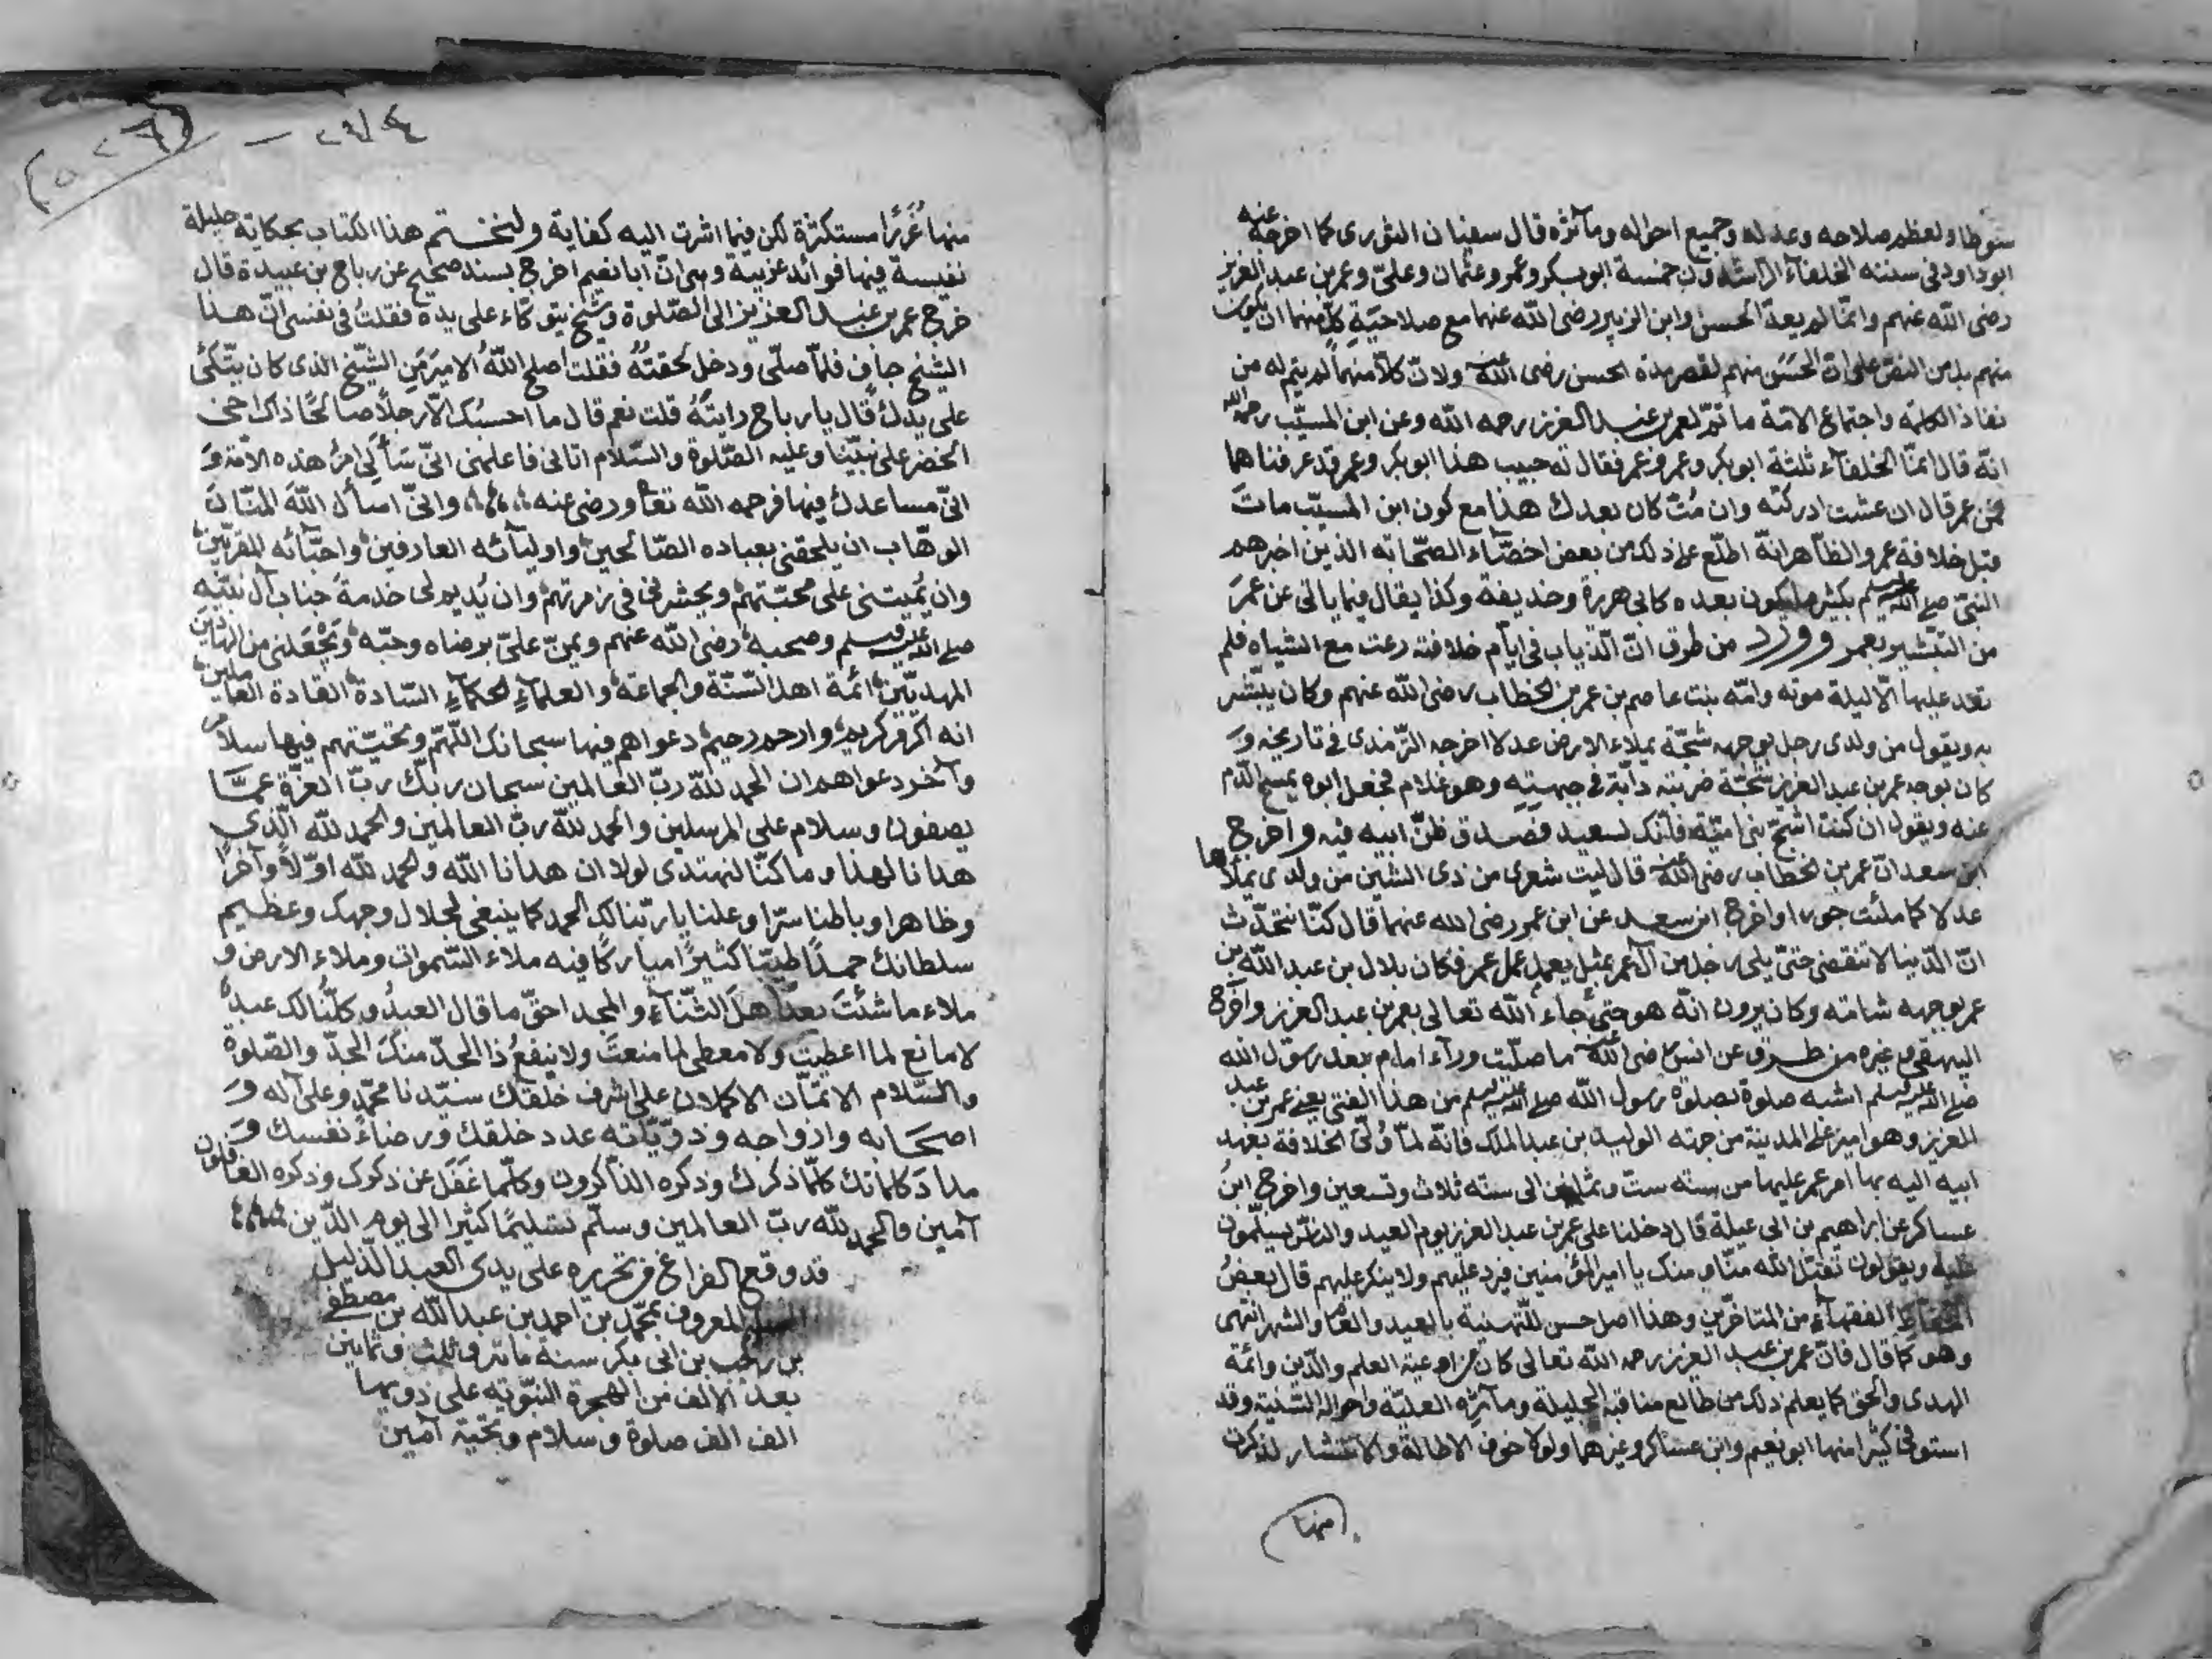 سقوطها ولعظم صلاحه وعدله وجميع احواله ومآثره قال سفيان الثورى كما اخرجه عنه
ابو داود فى سننه الخلفآء الراشدون خمسة ابوبكر وعمر وعثمان وعلىّ وعمر بن عبد العزيز
رضى الله عنهم وانما لم يعدّ الحسن وابن الزبير رضى الله عنهما مع صلاحيّة كلّ منهما ان يكون
منهم بل من النصّ على انّ الحسن منهم لقصر مدة الحسن رضى الله عنه ولانّ كلّا منهما لم يتم له من
نفاذ الكلمة واجتماع الامّة ما تمّ لعمر بن عبد العزيز رحمه الله وعن ابن المسيّب رحمه الله
انّه قال انمّا الخلفآء ثلثة ابوبكر وعمر وعمر فقال له حبيب هذا ابوبكر وعمر قد عرفناهما
فمن عمر قال ان عشت ادركته وان مُتّ كان بعدك هذا مع كون ابن المسيّب مات
قبل خلافة عمر والظاهر انّه اطّلع على ذلك من بعض اخصّاء الصّحابة الذين اخبرهم
النبىّ صلى الله عليه وسلم بكثير مما يكون بعده كابى هريرة وحذيفة وكذا يقال فيما ياتى عن عمر
من التبشير بعمر وورد من طرق انّ الذّياب فى ايّام خلافته رعت مع الشياه فلم
تعد عليها الّا ليلة موته وامّه بنت عاصم بن عمر بن الخطاب رضى الله عنهم وكان يبشّر
به ويقول من ولدى رجل بوجهه شجّة يملاء الارض عدلا اخرجه الترّمذى فى تاريخه و
كان بوجه عمر بن عبد العزيز شجّة ضربته دابّة فى جبهته وهو غلام فجعل ابوه يمسح الدّم
عنه ويقول ان كنت اشجّ بنى اميّة فانّك لسعيد فصدق ظنّ ابيه فيه واخرج
ابن سعد انّ عمر بن الخطاب رضى الله عنه قال ليت شعرى من ذى الشين من ولدى يملأها
عدلا كما ملئت جورا واخرج ابن سعد عن ابن عمر رضى الله عنهما قال كنّا نتحدّث
انّ الدّنيا لا تنقضى حتىّ يلى رجل من آل عمر بمثل يعمل عمل عمر فكان بلال بن عبد الله بن
عمر بوجهه شامة وكانوا يرون انّه هو حتىّ جاء الله تعالى بعمر بن عبد العزيز واخرج
البيهقى وغيره من طرق عن انس رضى الله عنه ما صلّيت ورآء امام بعد رسول الله
صلى الله عليه وسلم اشبه صلوة بصلوة رسول الله صلى الله عليه وسلم من هذا الفتى يعنى عمر بن عبد
العزيز وهو امير على المدينة من جهة الوليد بن عبد الملك فانّه لمّا ولّى الخلافة بعهد
ابيه اليه بها امر عمر عليها من سنة ستّ وثمانين الى سنة ثلاث وتسعين واخرج ابن
عساكر عن ابراهيم بن ابى عبلة قال دخلنا على عمر بن عبد العزيز يوم العيد والناس يسلّمون
عليه ويقولون تقبّل الله منّا ومنك يا امير المؤمنين فيردّ عليهم ولا ينكر عليهم قال بعض
الحفّاظ الفقهآء من المتاخّرين وهذا اصل حسن للتّهنية بالعيد والعام والشهر انتهى
وهو كما قال فانّ عمر بن عبد العزيز رحمه الله تعالى كان من اوعية العلم والدّين وائمّة
الهدى والحق كما يعلم ذلك من طالع مناقبه الجليلة ومآثره العليّة واحواله السّنية وقد
استوفى كثيرا منها ابو نعيم وابن عساكر وغيرهما ولولا خوف الاطالة والانتشار لذكرت
منها
منها غُرَرًا مستكثرة لكن فيما اشرت اليه كفاية ولنختتم هذا الكتاب بحكاية جليلة
نفيسة فيها فوائد غريبة وهى انّ ابا نعيم اخرج بسند صحيح عن رباح بن عبيدة قال
خرج عمر بن عبد العزيز الى الصّلوة وشيخ يتوكّاء على يده فقلت فى نفسى انّ هذا
الشيخ جاف فلمّا صلّى ودخل لحقته فقلت اصلح الله الامير من الشيّخ الذى كان يتّكئ
على يدك قال يا رباح رايته قلت نعم قال ما احسبك الّا رجلاً صالحًا ذاك اخى
الخضر على نبيّنا وعليه الصّلوة والسّلام اتانى فاعلمنى انىّ سَألى امر هذه الامّة و
انىّ مساعدك فيها فرحمه الله تعا ورضى عنه وانىّ اسأل الله المنّان
الوهّاب ان يلحقنى بعباده الصّالحين واوليآئه العارفين واحبّآئه المقرّبين
وان يُميتنى على محبّتهم ويحشرنى فى زمرتهم وان يُديم لى خدمة جناب آل نبيّه
صلى الله عليه وسلم وصحبه رضى الله عنهم ويمنّ علىّ برضاه وحبّه ويجعلنى من الهادين
المهديّين ائمة اهل السّنّة والجماعة والعلمآء الحكمآء السّادة القادة العاملين
انه اكرم كريم وارحم رحيم دعواهم فيها سبحانك اللّهمّ وتحيّتهم فيها سلام
وآخر دعواهم ان الحمد للّه ربّ العالمين سبحان ربّك ربّ العزّة عمّا
يصفون وسلام على المرسلين والحمد للّه ربّ العالمين والحمد للّه الّذى
هدانا لهذا وما كنّا لنهتدى لولا ان هدانا الله والحمد للّه اوّلاً وآخراً
وظاهرا وباطنا سّرا وعلنا يا ربّنا لك الحمد كما ينبغى لجلال وجهك وعظيم
سلطانك حمدًا طيّبًا كثيرًا مباركًا فيه ملاء السّموات وملاء الارض و
ملاء ما شئت بعد اهل الثنّاء والمجد احقّ ما قال العبد وكلّنا لك عبد
لا مانع لما اعطيت ولا معطى لما منعت ولا ينفع ذا الجدّ منك الجدّ والصّلوة
والسّلام الاتمّان الاكملان على اشرف خلقك سيّدنا محمّد وعلى آله و
اصحابه وازواجه وذريّاته عدد خلقك ورضاء نفسك و
مداد كلماتك كلمّا ذكرك وذكره الذّاكرون وكلّما غفل عن ذكرك وذكره الغافلون
آمين والحمد للّه ربّ العالمين وسلّم تسليمًا كثيرا الى يوم الدّين
قد وقع الفراغ من تحريره على يدى العبد الذّليل
المعروف بمحمّد بن احمد بن عبد الله بن مصطفى
بن رجب بن ابى بكر سنة مائة وثلث وثمانين
بعد الالف من الهجرة النبّويّة على ذويها
الف الف صلوة وسلام وتحيّة آمين